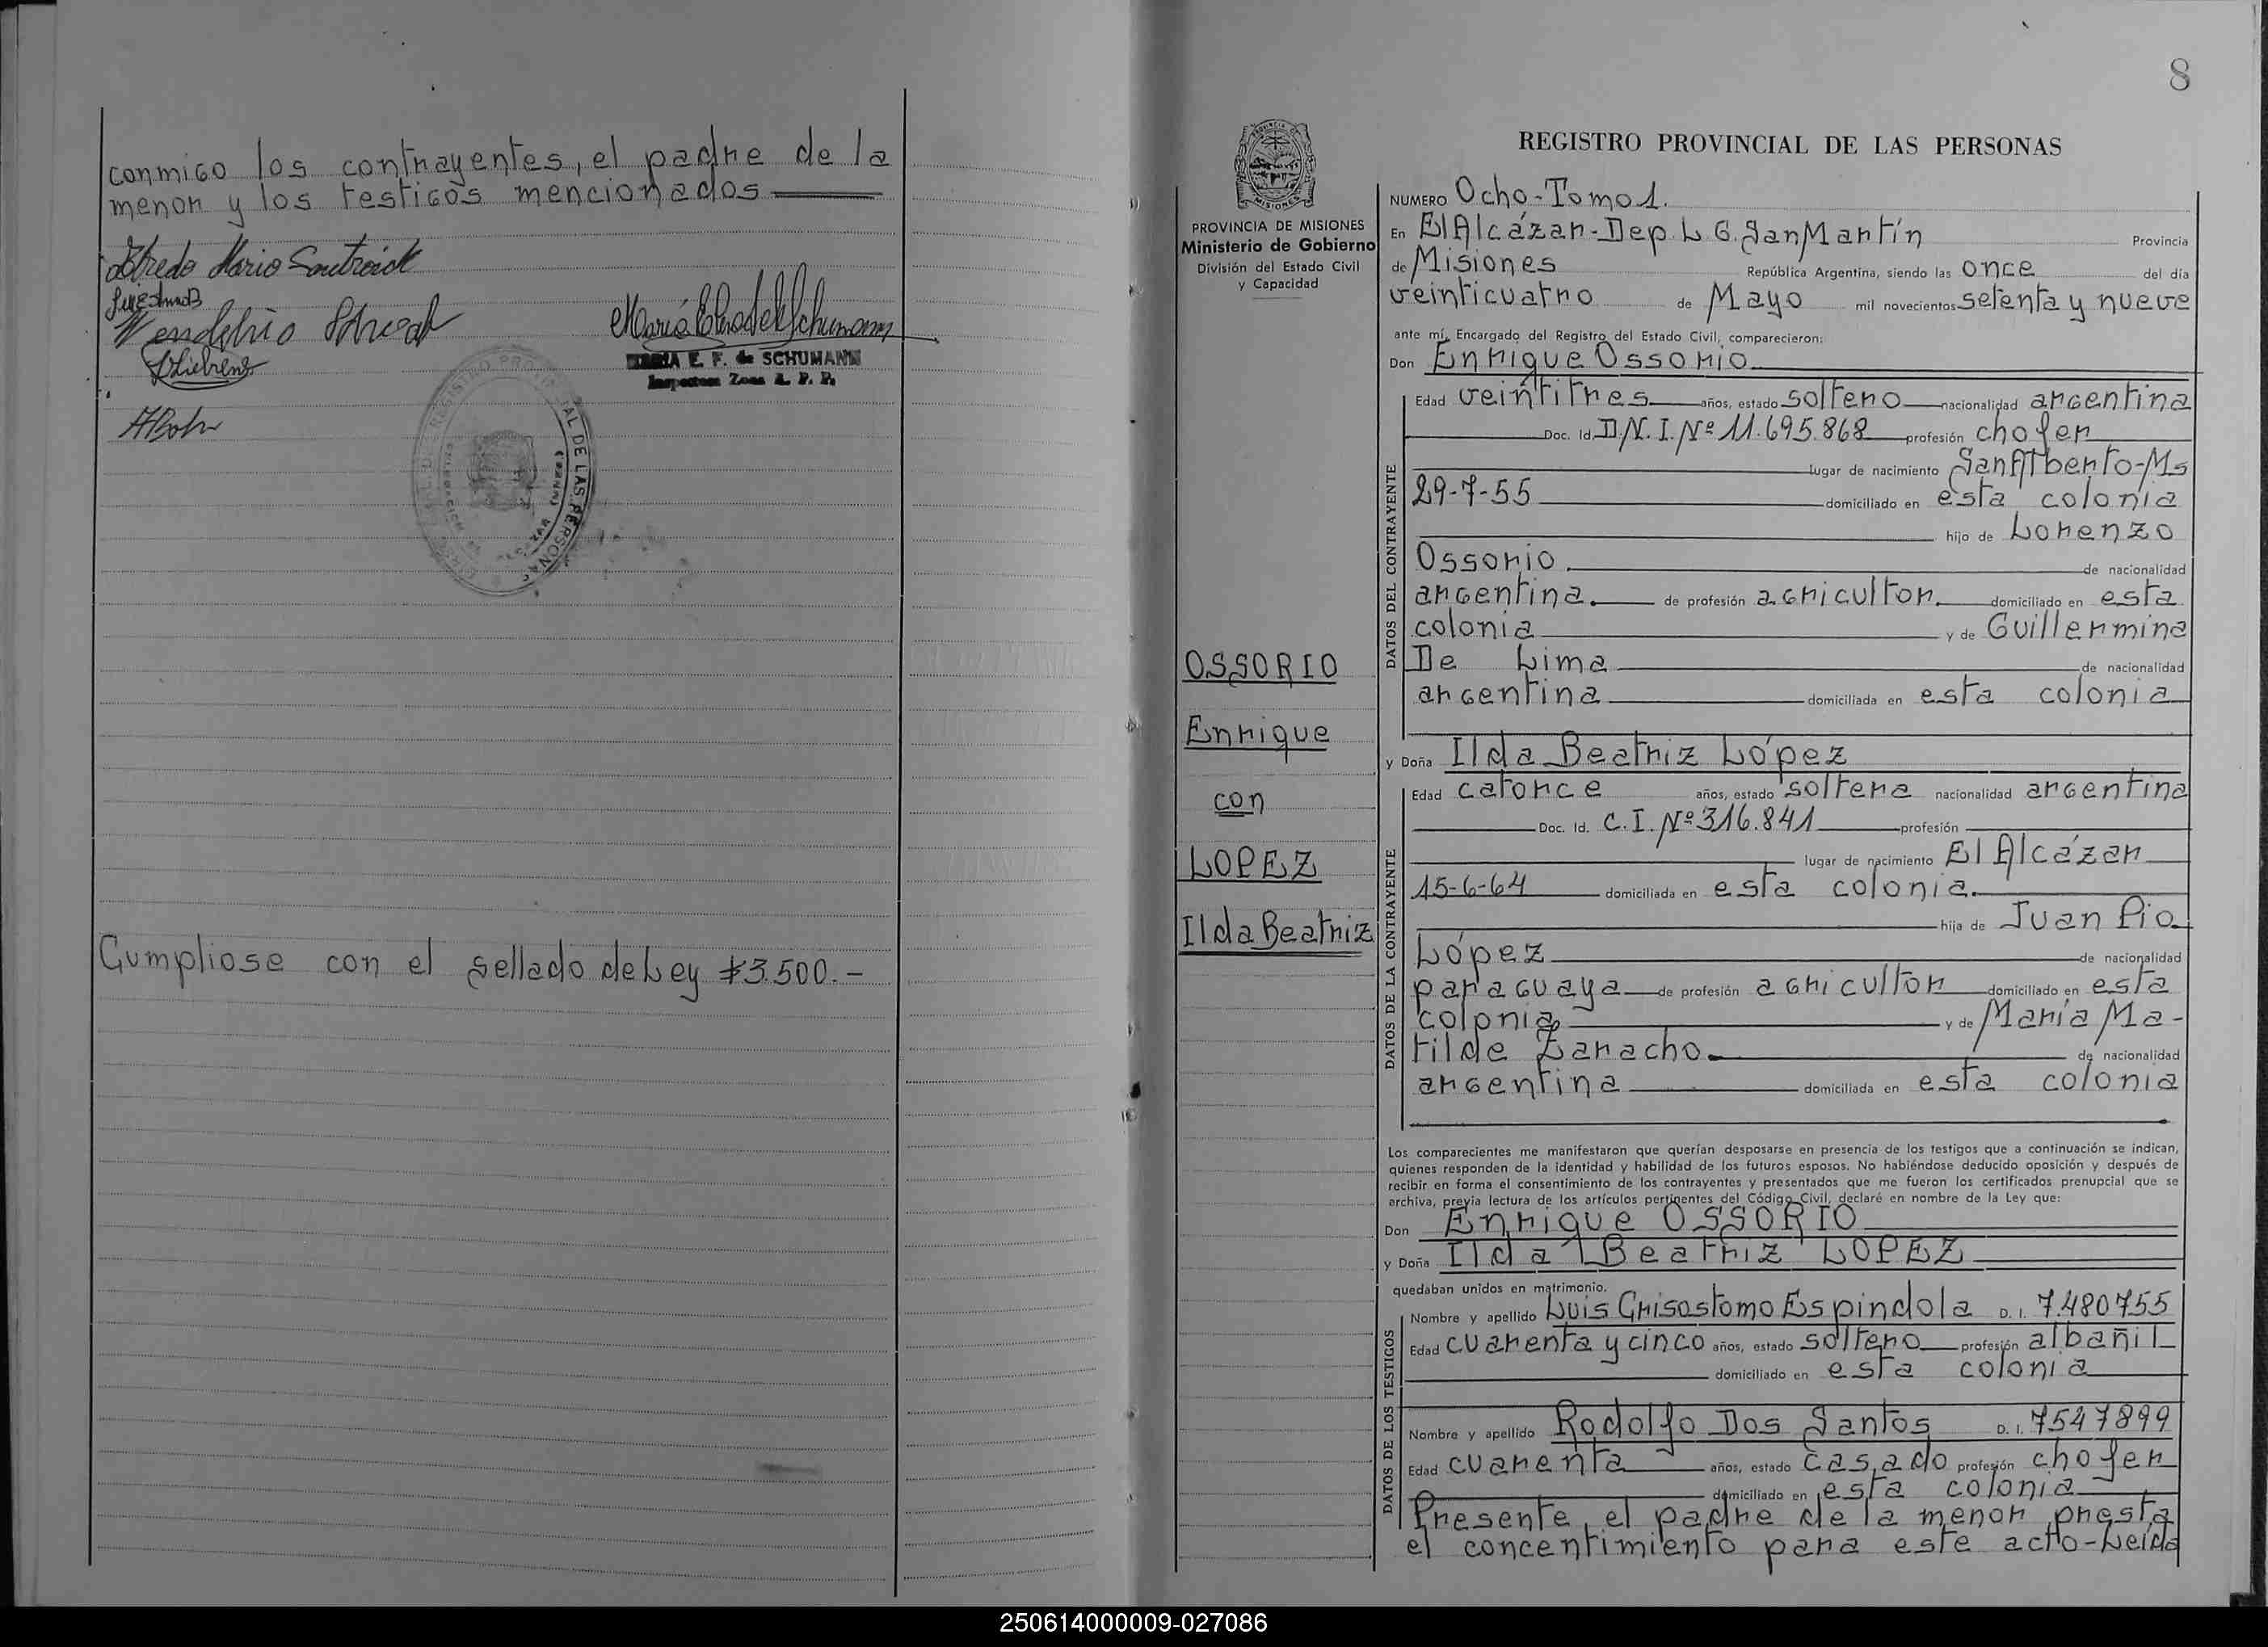 conmigo los contrayentes, el padre de la
menor y los testigos mencionados
Alfredo Mario
Wendelino
MARIA E. F. de SCHUMANN
Inspectora Zona A. P. P.
Cumpliose con el sellado de Ley $3.500.-
8
REGISTRO PROVINCIAL DE LAS PERSONAS
PROVINCIA DE MISIONES
Ministerio de Gobierno
División del Estado Civil
y Capacidad
OSSORIO
Enrique
con
LOPEZ
Ilda Beatriz
NUMERO Ocho-Tomo 1.
En El Alcázar-Dep. L G. San Martín Provincia
de Misiones República Argentina, siendo las once del día
veinticuatro de Mayo mil novecientos setenta y nueve
ante mí, Encargado del Registro del Estado Civil, comparecieron:
Don Enrique Ossorio
DATOS DEL CONTRAYENTE
Edad veintitres años, estado soltero nacionalidad argentina
Doc. Id. D.N.I.Nº 11.695.868 profesión chofer
lugar de nacimiento San Alberto-Ms
29-7-55 domiciliado en esta colonia
hijo de Lorenzo
Ossorio de nacionalidad
argentina. de profesión agricultor. domiciliado en esta
colonia y de Guillermina
De Lima de nacionalidad
argentina domiciliada en esta colonia
y Doña Ilda Beatriz López
DATOS DE LA CONTRAYENTE
Edad catorce años, estado soltera nacionalidad argentina
Doc. Id. C.I.Nº 316.841 profesión
lugar de nacimiento El Alcázar
15-6-64 domiciliada en esta colonia.
hija de Juan Pio
López de nacionalidad
paraguaya de profesión agricultor domiciliado en esta
colonia y de María Ma-
tilde Zaracho. de nacionalidad
argentina domiciliada en esta colonia
Los comparecientes me manifestaron que querían desposarse en presencia de los testigos que a continuación se indican,
quienes responden de la identidad y habilidad de los futuros esposos. No habiéndose deducido oposición y después de
recibir en forma el consentimiento de los contrayentes y presentados que me fueron los certificados prenupcial que se
archiva, previa lectura de los artículos pertinentes del Código Civil, declaré en nombre de la Ley que:
Don Enrique OSSORIO
y Doña Ilda Beatriz LOPEZ
quedaban unidos en matrimonio.
DATOS DE LOS TESTIGOS
Nombre y apellido Luis Crisostomo Espindola D. I. 7.480755
Edad cuarenta y cinco años, estado soltero profesión albañil
domiciliado en esta colonia
Nombre y apellido Rodolfo Dos Santos D. I. 7547899
Edad cuarenta años, estado casado profesión chofer
domiciliado en esta colonia
Presente el padre de la menor presta
el concentimiento para este acto-Leída
250614000009-027086